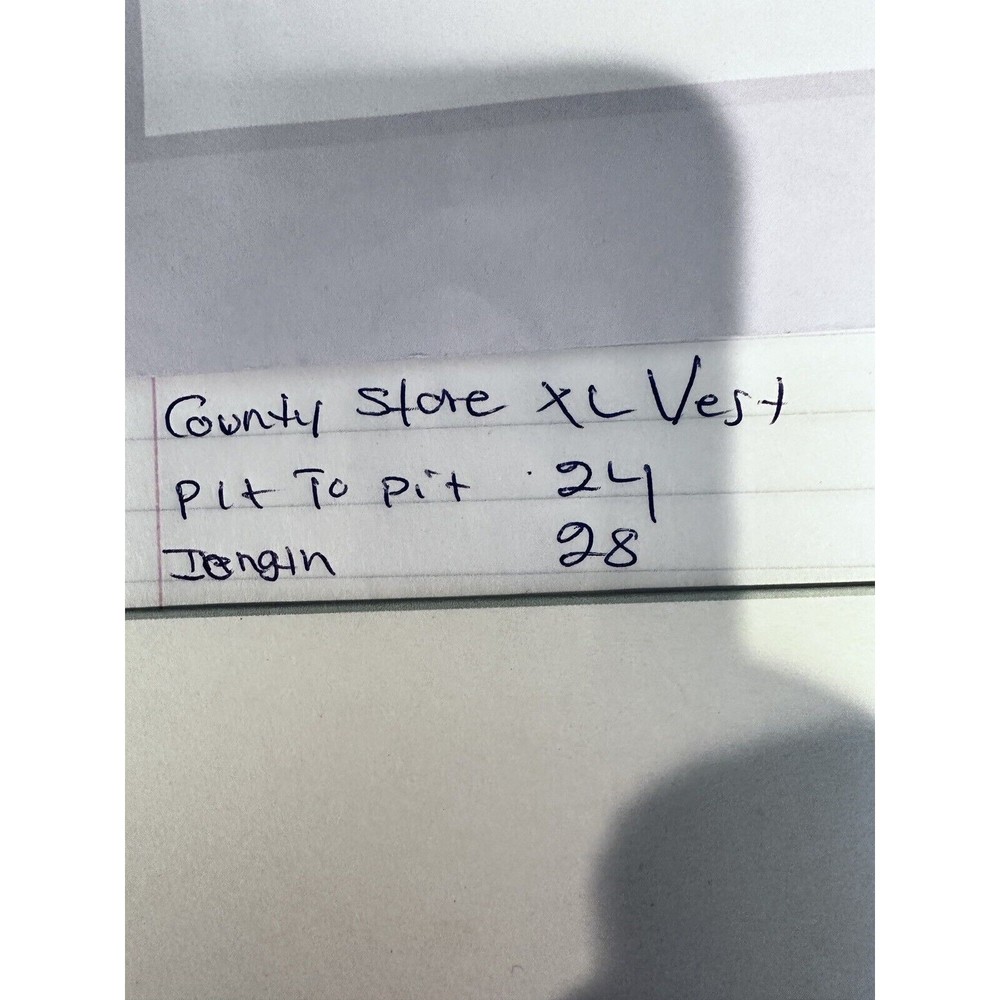 County Store XL Vest
Pit To pit 24
Length 28